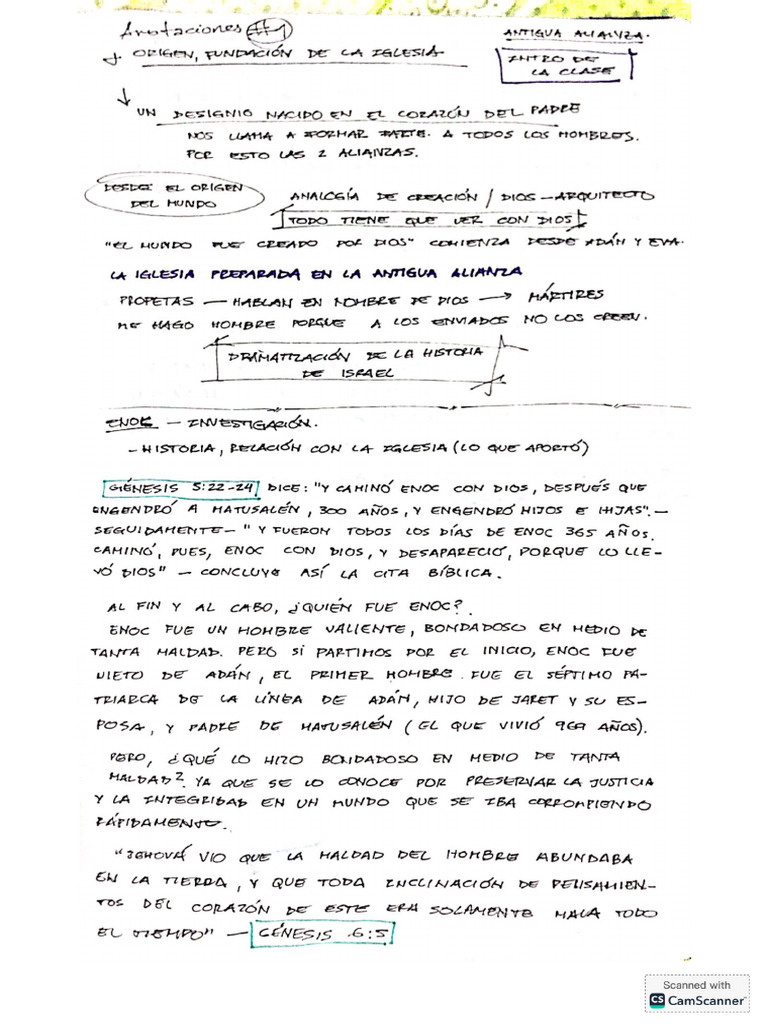 Anotaciones #1
ANTIGUA ALIANZA.
ORIGEN, FUNDACIÓN DE LA IGLESIA
INTRO DE
LA CLASE
UN DESIGNIO NACIDO EN EL CORAZÓN DEL PADRE
NOS LLAMA A FORMAR PARTE. A TODOS LOS HOMBRES.
POR ESTO LAS 2 ALIANZAS.
DESDE EL ORIGEN
DEL MUNDO
ANALOGÍA DE CREACIÓN / DIOS - ARQUITECTO
TODO TIENE QUE VER CON DIOS
"EL MUNDO FUE CREADO POR DIOS" COMIENZA DESDE ADÁN Y EVA.
LA IGLESIA PREPARADA EN LA ANTIGUA ALIANZA
PROFETAS — HABLAN EN NOMBRE DE DIOS → MÁRTIRES
ME HAGO HOMBRE PORQUE A LOS ENVIADOS NO LOS CREEN.
DRAMATIZACIÓN DE LA HISTORIA
DE ISRAEL
ENOC — INVESTIGACIÓN.
- HISTORIA, RELACIÓN CON LA IGLESIA (LO QUE APORTÓ)
GÉNESIS 5:22-24 DICE: "Y CAMINÓ ENOC CON DIOS, DESPUÉS QUE
ENGENDRÓ A MATUSALÉN, 300 AÑOS, Y ENGENDRÓ HIJOS E HIJAS". —
SEGUIDAMENTE — "Y FUERON TODOS LOS DÍAS DE ENOC 365 AÑOS.
CAMINÓ, PUES, ENOC CON DIOS, Y DESAPARECIÓ, PORQUE LO LLE-
VÓ DIOS" — CONCLUYE ASÍ LA CITA BÍBLICA.
AL FIN Y AL CABO, ¿QUIÉN FUE ENOC?
ENOC FUE UN HOMBRE VALIENTE, BONDADOSO EN MEDIO DE
TANTA MALDAD. PERO SI PARTIMOS POR EL INICIO, ENOC FUE
NIETO DE ADÁN, EL PRIMER HOMBRE. FUE EL SÉPTIMO PA-
TRIARCA DE LA LÍNEA DE ADÁN, HIJO DE JARET Y SU ES-
POSA, Y PADRE DE MATUSALÉN (EL QUE VIVIÓ 969 AÑOS).
PERO, ¿QUÉ LO HIZO BONDADOSO EN MEDIO DE TANTA
MALDAD? YA QUE SE LO CONOCE POR PRESERVAR LA JUSTICIA
Y LA INTEGRIDAD EN UN MUNDO QUE SE IBA CORROMPIENDO
RÁPIDAMENTE.
"JEHOVÁ VIO QUE LA MALDAD DEL HOMBRE ABUNDABA
EN LA TIERRA, Y QUE TODA INCLINACIÓN DE PENSAMIEN-
TOS DEL CORAZÓN DE ESTE ERA SOLAMENTE MALA TODO
EL TIEMPO" — GÉNESIS 6:5
Scanned with
CS CamScanner